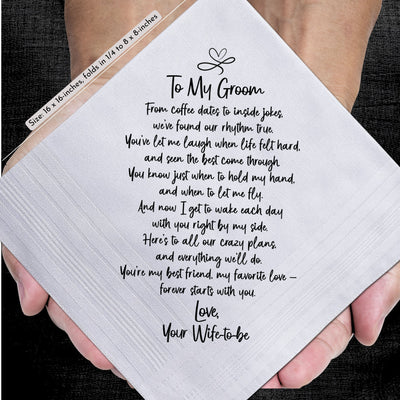 Size: 16 x 16-inches, folds in 1/4 to 8 x 8-inches
To My Groom
From coffee dates to inside jokes,
we've found our rhythm true.
You've let me laugh when life felt hard,
and seen the best come through.
You know just when to hold my hand,
and when to let me fly.
And now I get to wake each day
with you right by my side.
Here's to all our crazy plans,
and everything we'll do.
You're my best friend, my favorite love —
forever starts with you.
Love,
Your Wife-to-be